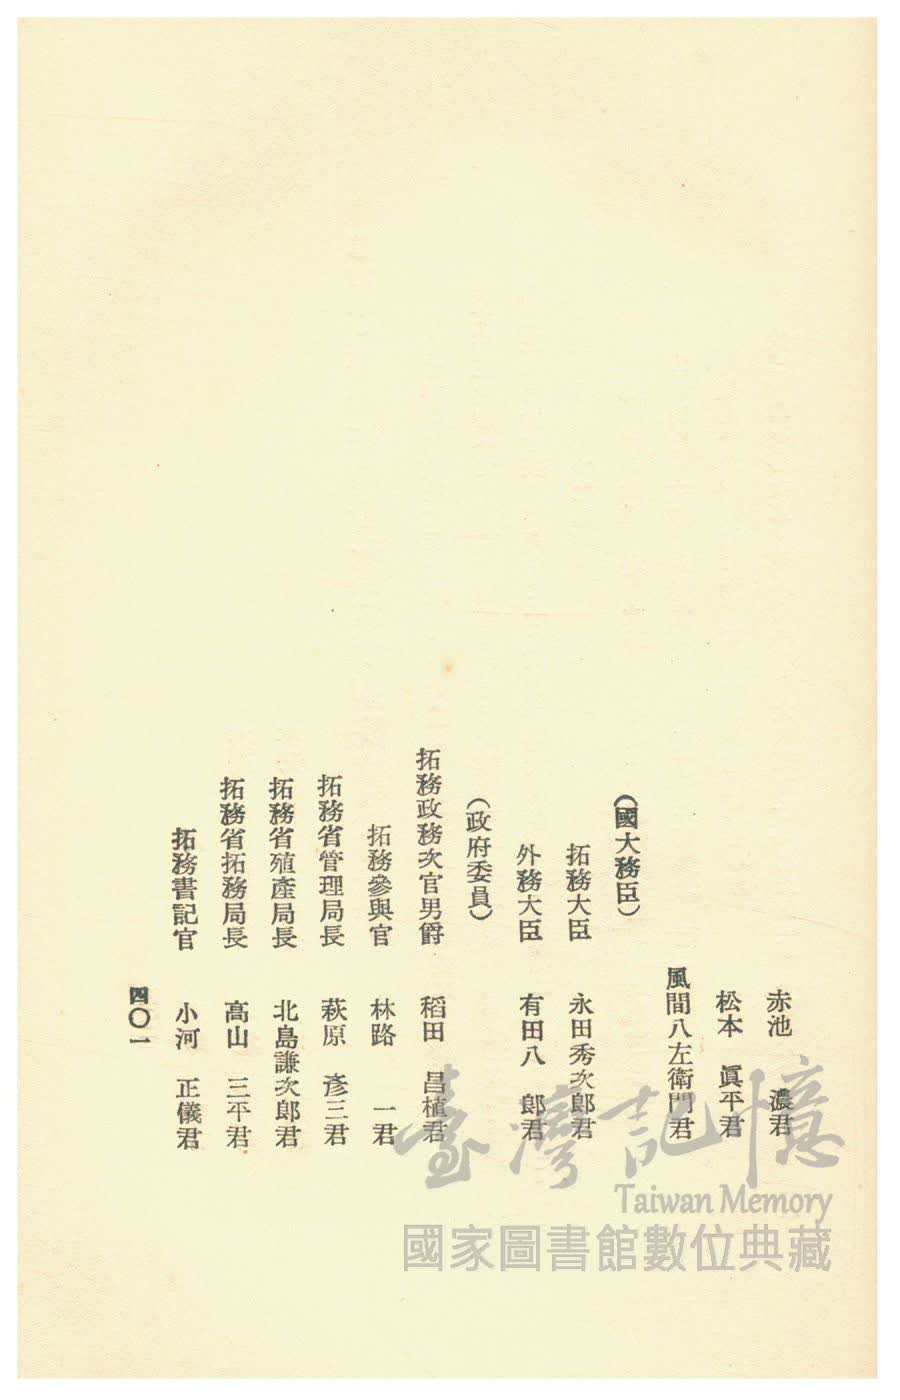 赤池　濃君
松本　眞平君
風間八左衛門君
（國大務臣）
拓務大臣　永田秀次郎君
外務大臣　有田八　郎君
（政府委員）
拓務政務次官男爵　稻田　昌植君
拓務參與官　林路　一君
拓務省管理局長　萩原　彥三君
拓務省殖產局長　北島謙次郎君
拓務省拓務局長　高山　三平君
拓務書記官　小河　正儀君
四〇一
臺灣記憶
Taiwan Memory
國家圖書館數位典藏